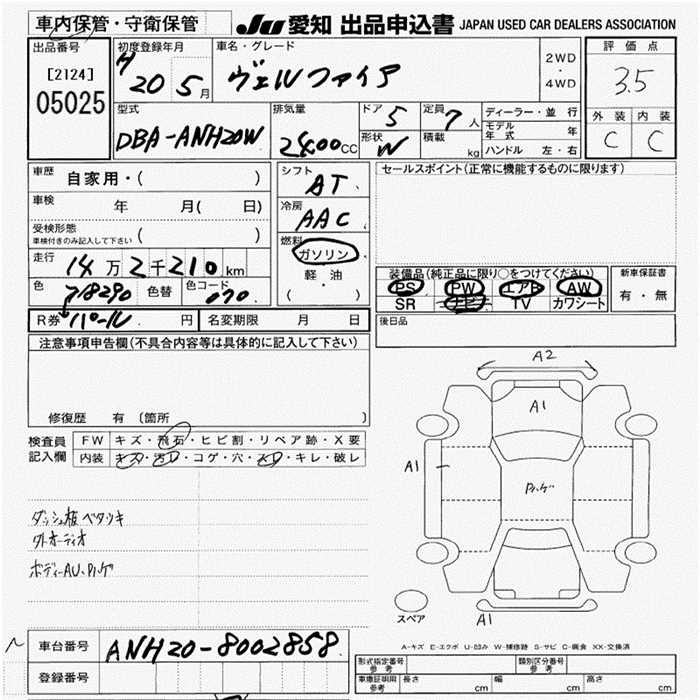 車内保管・守衛保管
JU 愛知 出品申込書 JAPAN USED CAR DEALERS ASSOCIATION
出品番号
[2124]
05025
初度登録年月
H
20 5月
車名・グレード
ヴェルファイア
2WD
・
4WD
評価点
3.5
外装 内装
C C
型式
DBA-ANH20W
排気量
2400cc
ドア 5
形状 W
定員 7人
積載 kg
ディーラー・並行
モデル年式 年
ハンドル 左・右
車歴 自家用・( )
車検 年 月( 日)
受検形態
車検付きのみ記入して下さい ( )
走行 14万2千210km
色 色替 色コード 070
シフト
AT
冷房
AAC
燃料
ガソリン
・
軽油
( )
セールスポイント(正常に機能するものに限ります)
装備品(純正品に限り○をつけてください)
PS PW エアB AW
SR ナビ TV カワシート
新車保証書
有・無
後日品
R券 パール 円 名変期限 月 日
注意事項申告欄(不具合内容等は具体的に記入して下さい)
修復歴 有(箇所 )
検査員
記入欄
FW キズ・飛石・ヒビ割・リペア跡・X要
内装 キズ・汚レ・コゲ・穴・スレ・キレ・破レ
ダッシュ板ベタツキ
外オーディオ
A2
A1
A1
A1
スペア
A-キズ E-エクボ U-凹み W-補修跡 S-サビ C-腐食 XX-交換済
車台番号 ANH20-8002858
登録番号
形式指定番号
参考
類別区分番号
参考
車庫証明用
参考
長さ cm 幅 cm 高さ cm